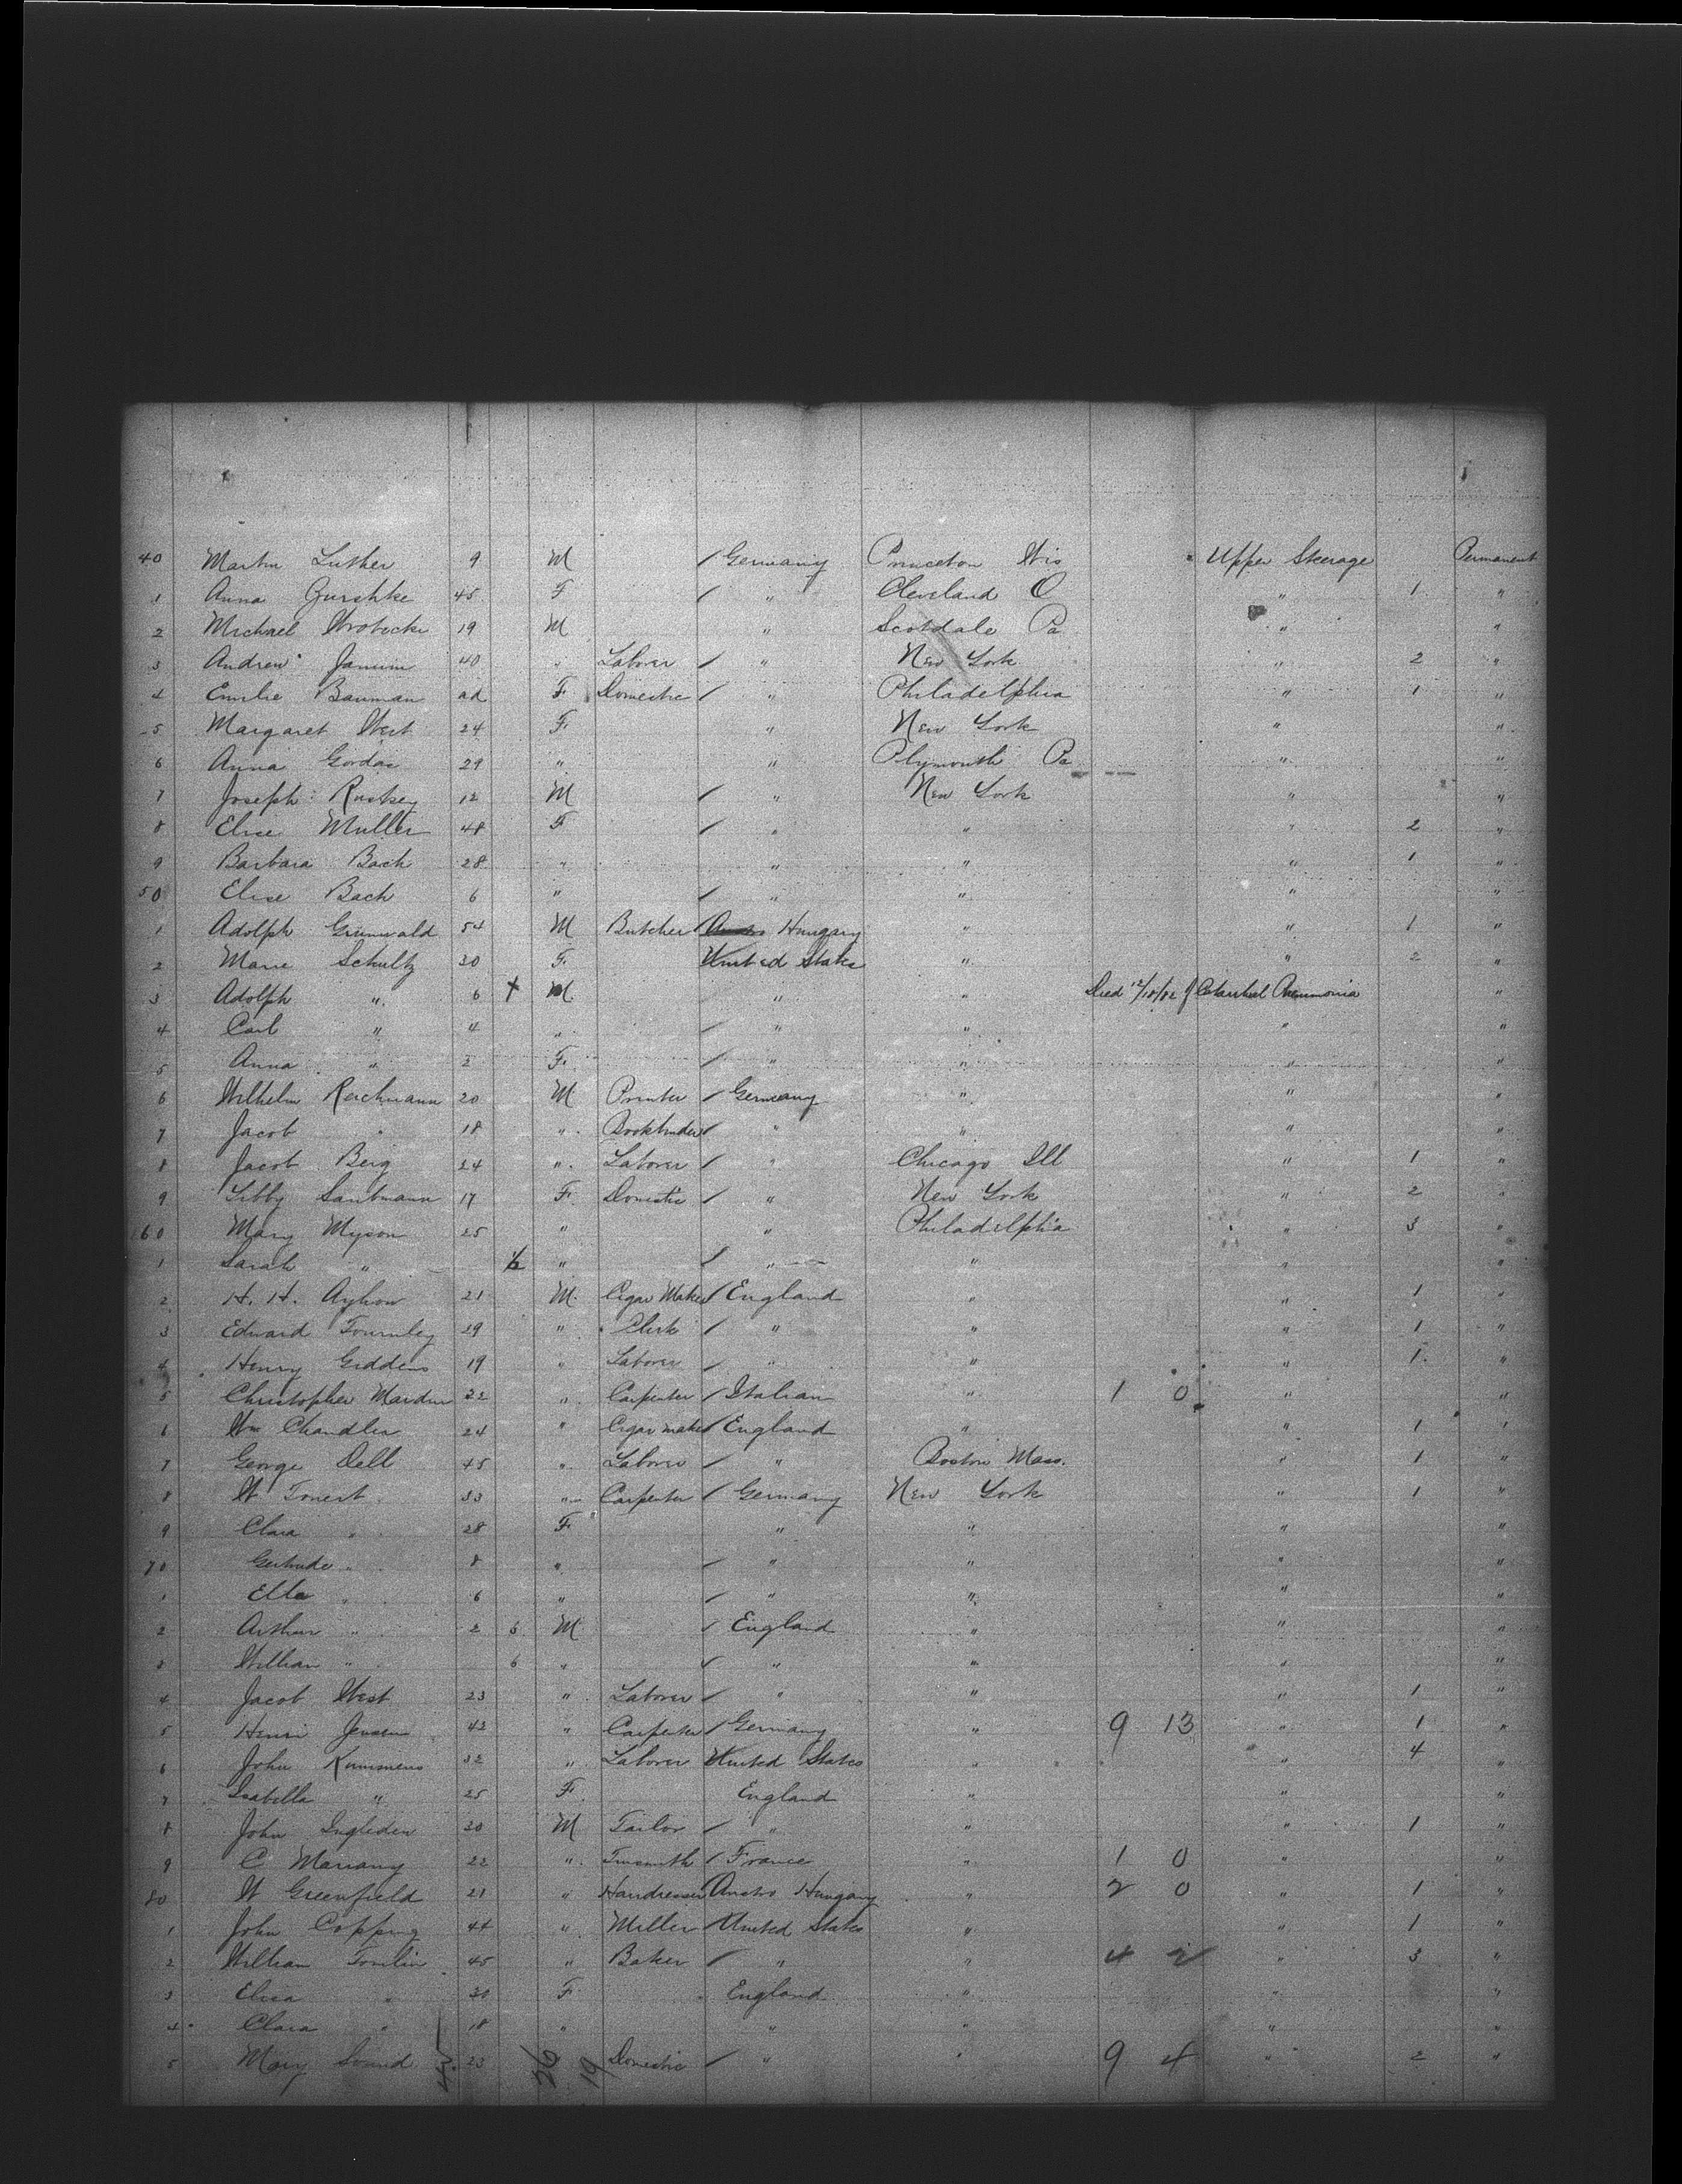 40 Martin Luther 9 M / Germany Princeton Wis " Upper Steerage Permanent
1 Anna Gurshke 45 F / " Cleveland O " 1 "
2 Michael Wrobecki 19 M " Scotdale Pa " "
3 Andrew Janum 40 " Laborer / " New York " 2 "
4 Emilie Bauman ad F Domestic / " Philadelphia " 1 "
5 Margaret West 24 F " New York " "
6 Anna Gordai 29 " " Plymouth Pa " "
7 Joseph Ruskey 12 M / " New York " "
8 Elise Muller 48 F / " " " 2 "
9 Barbara Bach 28 " " " " 1 "
50 Elise Bach 6 " / " " " "
1 Adolph Grunwald 54 M Butcher / Austro Hungary " " 1 "
2 Marie Schultz 30 F United States " " 2 "
3 Adolph " 6 + M " " Died 12/18/82 of Catarrhal Pneumonia "
4 Carl " 4 " / " " " "
5 Anna " 2 F / " " " "
6 Wilhelm Reichmann 20 M Printer / Germany " " "
7 Jacob " 18 " Bookbinder / " " " "
8 Jacob Berg 24 " Laborer / " Chicago Ill " 1 "
9 Libby Santmann 17 F Domestic / " New York " 2 "
60 Mary Myson 25 " " Philadelphia " 3 "
1 Sarah " 1/2 " / " " " "
2 H. H. 21 M Cigar Maker / England " " 1 "
3 Edward Tournley 29 " Clerk / " " " 1 "
4 Henry Giddens 19 " Laborer / " " " 1 "
5 Christopher 22 " Carpenter / Italian " 1 0 " "
6 Wm Chandler 24 " Cigar maker / England " " 1 "
7 George Dell 45 " Laborer / " Boston Mass. " 1 "
8 W 33 " Carpenter / Germany New York " 1 "
9 Clara " 28 F " " " "
70 Gertrude " 8 " / " " " "
1 Ella " 6 " / " " " "
2 Arthur " 2 M / England " " "
3 William " 6 " / " " " "
4 Jacob West 23 " Laborer / " " " 1 "
5 Henri Jensen 42 " Carpenter / Germany " 9 13 " 1 "
6 John Kummens 32 " Laborer United States " " 4 "
7 Isabella " 25 F England " " "
8 John Ingleden 30 M Tailor / " " " 1 "
9 C Mariany 22 " Tinsmith / France " 1 0 " "
80 W Greenfield 21 " Hairdresser / Austro Hungary " 2 0 " 1 "
1 John Copping 44 " Miller / United States " " 1 "
2 William Tomlin 45 " Baker / " " 4 2 " 3 "
3 Eliza " F England " " "
4 Clara " 18 " " " " "
5 Mary Sound 23 Domestic / " " 9 4 " 2 "
26 19